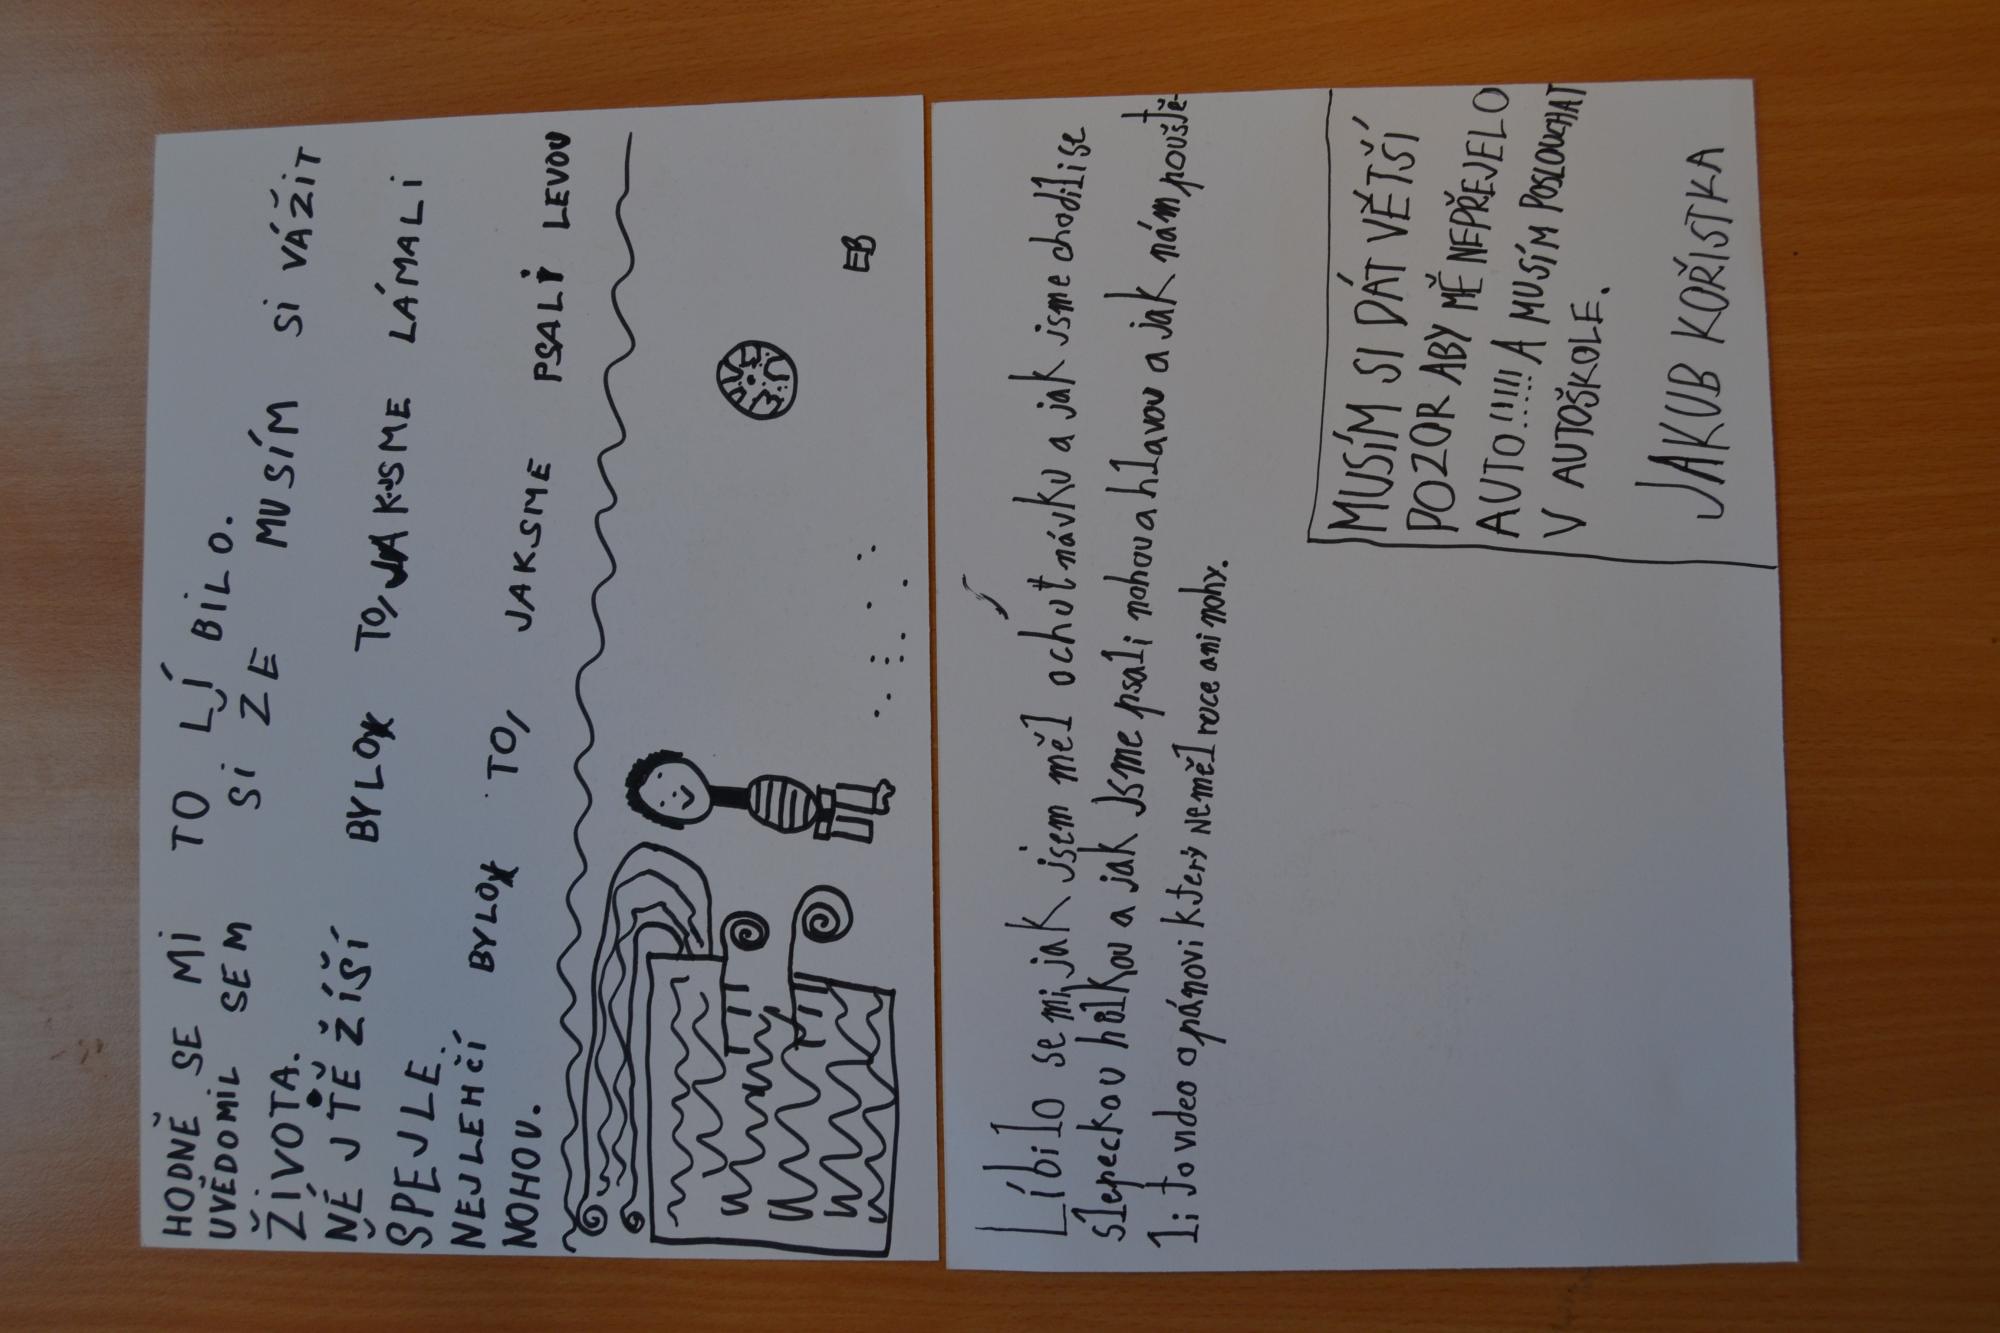 HODNĚ SE MI TO LÍBILO.
UVĚDOMIL SEM SI ŽE MUSÍM SI VÁŽIT
ŽIVOTA.
NĚJTĚŽŠÍ BYLO TO, JAKSME LÁMALI
ŠPEJLE.
NEJLEHČÍ BYLO TO, JAKSME PSALI LEVOU
NOHOU.
EB
Líbilo se mi jak jsem měl ochutnávku a jak jsme chodili se
slepeckou hůlkou a jak jsme psali nohou a hlavou a jak nám pouště-
li to video o pánovi který neměl ruce ani nohy.
MUSÍM SI DÁT VĚTŠÍ
POZOR ABY MĚ NEPŘEJELO
AUTO!!!!! A MUSÍM POSLOUCHAT
V AUTOŠKOLE.
JAKUB KOŘISTKA